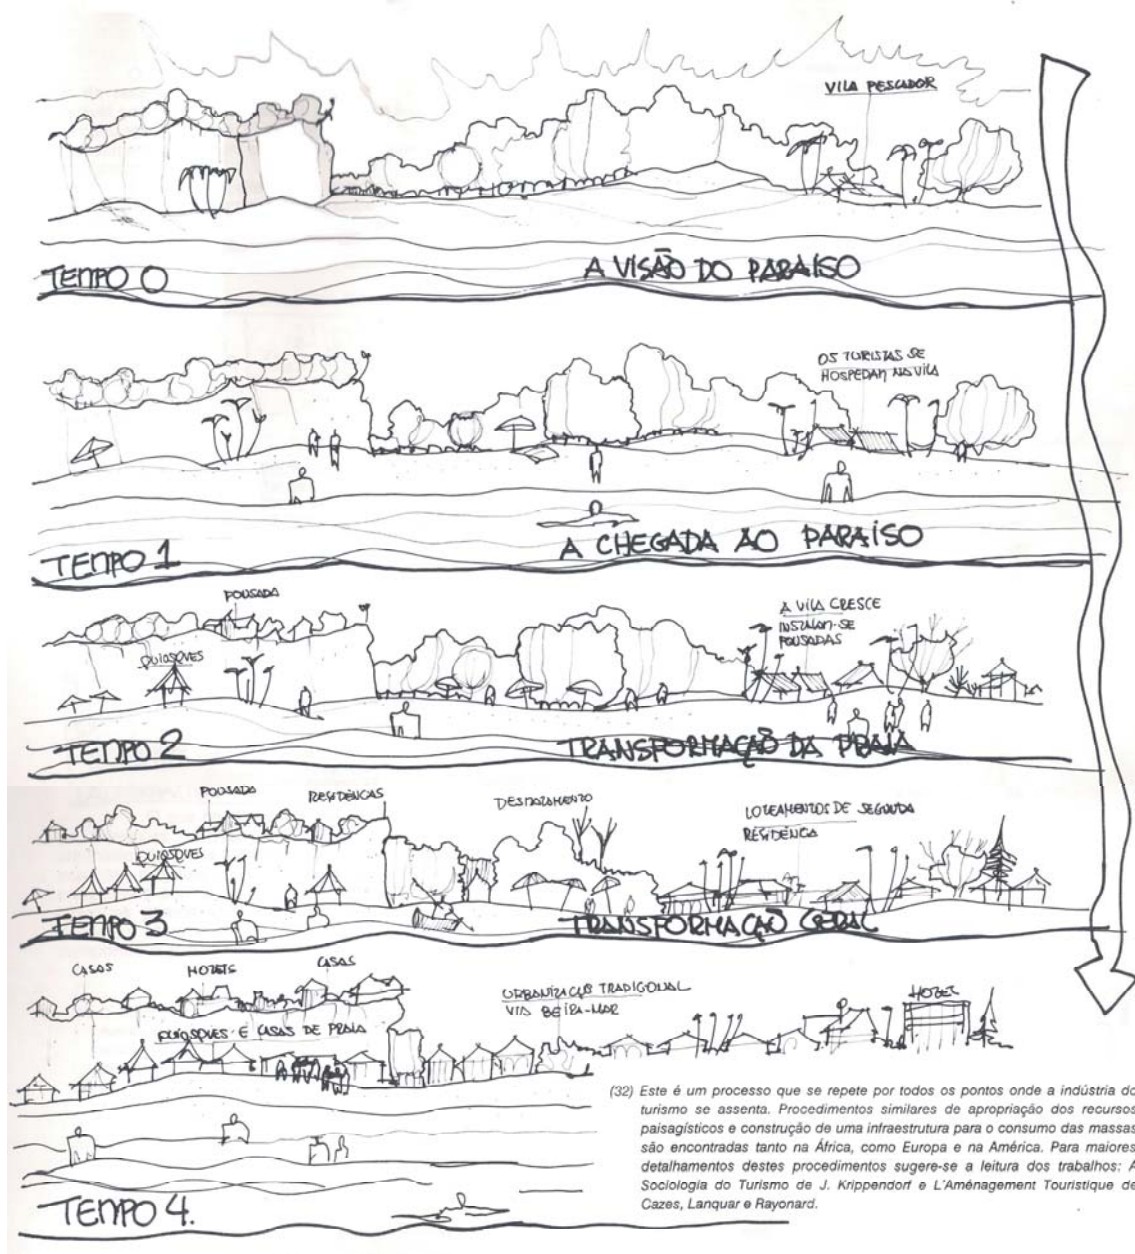 VILA PESCADOR
TEMPO 0
A VISÃO DO PARAISO
OS TURISTAS SE
HOSPEDAM NA VILA
TEMPO 1
A CHEGADA AO PARAÍSO
POUSADA
QUIOSQUES
A VILA CRESCE
INSTALAM-SE
POUSADAS
TEMPO 2
TRANSFORMAÇÃO DA PRAIA
POUSADA
RESIDÊNCIAS
DESMATAMENTO
LOTEAMENTOS DE SEGUNDA
RESIDÊNCIA
QUIOSQUES
TEMPO 3
TRANSFORMAÇÃO GERAL
CASAS
HOTEIS
CASAS
URBANIZAÇÃO TRADICIONAL
VIA BEIRA-MAR
HOTEL
QUIOSQUES E CASAS DE PRAIA
TEMPO 4.
(32) Este é um processo que se repete por todos os pontos onde a indústria do
turismo se assenta. Procedimentos similares de apropriação dos recursos
paisagísticos e construção de uma infraestrutura para o consumo das massas
são encontradas tanto na África, como Europa e na América. Para maiores
detalhamentos destes procedimentos sugere-se a leitura dos trabalhos: A
Sociologia do Turismo de J. Krippendorf e L'Aménagement Touristique de
Cazes, Lanquar e Rayonard.